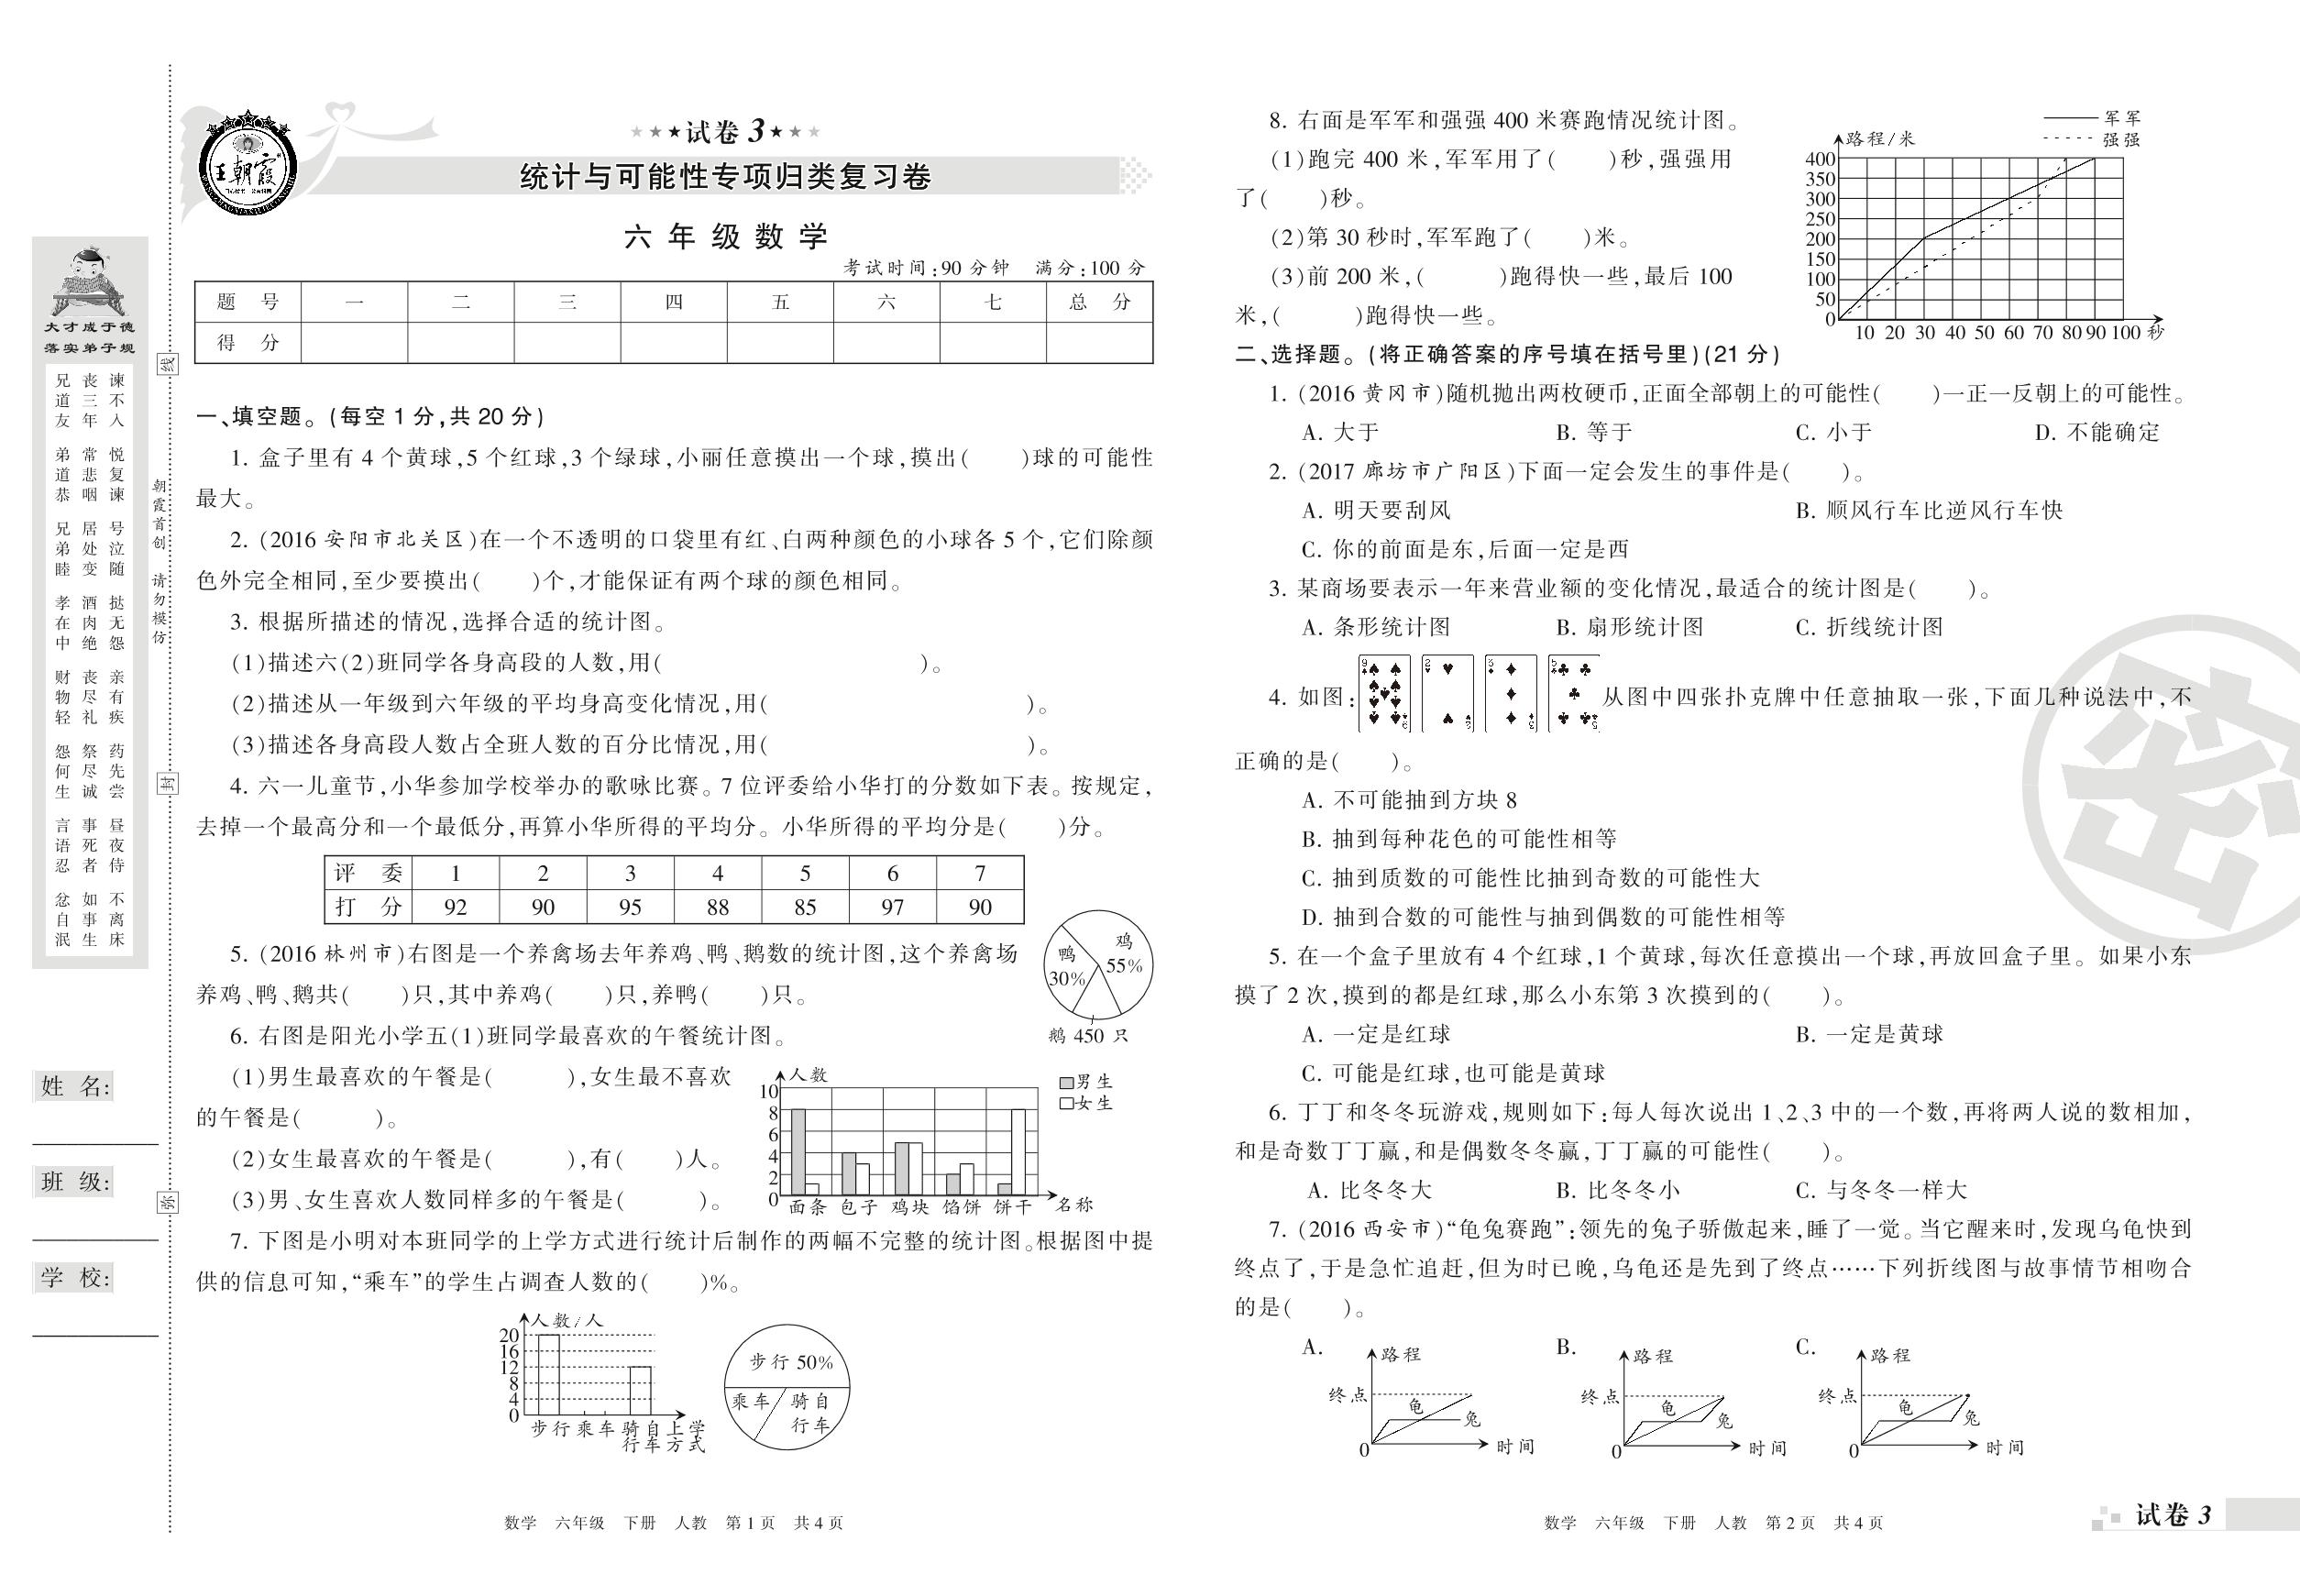 ★★★试卷 3★★★
统计与可能性专项归类复习卷
六年级数学
考试时间:90 分钟 满分:100 分
题 号 一 二 三 四 五 六 七 总 分
得 分
一、填空题。(每空 1 分,共 20 分)
1. 盒子里有 4 个黄球,5 个红球,3 个绿球,小丽任意摸出一个球,摸出( )球的可能性
最大。
2. (2016 安阳市北关区)在一个不透明的口袋里有红、白两种颜色的小球各 5 个,它们除颜
色外完全相同,至少要摸出( )个,才能保证有两个球的颜色相同。
3. 根据所描述的情况,选择合适的统计图。
(1)描述六(2)班同学各身高段的人数,用( )。
(2)描述从一年级到六年级的平均身高变化情况,用( )。
(3)描述各身高段人数占全班人数的百分比情况,用( )。
4. 六一儿童节,小华参加学校举办的歌咏比赛。7 位评委给小华打的分数如下表。按规定,
去掉一个最高分和一个最低分,再算小华所得的平均分。小华所得的平均分是( )分。
评 委 1 2 3 4 5 6 7
打 分 92 90 95 88 85 97 90
5. (2016 林州市)右图是一个养禽场去年养鸡、鸭、鹅数的统计图,这个养禽场
养鸡、鸭、鹅共( )只,其中养鸡( )只,养鸭( )只。
鸭 30%
鸡 55%
鹅 450 只
6. 右图是阳光小学五(1)班同学最喜欢的午餐统计图。
(1)男生最喜欢的午餐是( ),女生最不喜欢
的午餐是( )。
(2)女生最喜欢的午餐是( ),有( )人。
(3)男、女生喜欢人数同样多的午餐是( )。
人数
男生
女生
10
8
6
4
2
0
面条 包子 鸡块 馅饼 饼干 名称
7. 下图是小明对本班同学的上学方式进行统计后制作的两幅不完整的统计图。根据图中提
供的信息可知,“乘车”的学生占调查人数的( )%。
人数/人
20
16
12
8
4
0
步行 乘车 骑自行车 上学方式
步行 50%
乘车 骑自
行车
数学 六年级 下册 人教 第 1 页 共 4 页
8. 右面是军军和强强 400 米赛跑情况统计图。
(1)跑完 400 米,军军用了( )秒,强强用
了( )秒。
(2)第 30 秒时,军军跑了( )米。
(3)前 200 米,( )跑得快一些,最后 100
米,( )跑得快一些。
军军
强强
路程/米
400
350
300
250
200
150
100
50
0
10 20 30 40 50 60 70 80 90 100 秒
二、选择题。(将正确答案的序号填在括号里)(21 分)
1. (2016 黄冈市)随机抛出两枚硬币,正面全部朝上的可能性( )一正一反朝上的可能性。
A. 大于 B. 等于 C. 小于 D. 不能确定
2. (2017 廊坊市广阳区)下面一定会发生的事件是( )。
A. 明天要刮风 B. 顺风行车比逆风行车快
C. 你的前面是东,后面一定是西
3. 某商场要表示一年来营业额的变化情况,最适合的统计图是( )。
A. 条形统计图 B. 扇形统计图 C. 折线统计图
4. 如图: 从图中四张扑克牌中任意抽取一张,下面几种说法中,不
正确的是( )。
A. 不可能抽到方块 8
B. 抽到每种花色的可能性相等
C. 抽到质数的可能性比抽到奇数的可能性大
D. 抽到合数的可能性与抽到偶数的可能性相等
5. 在一个盒子里放有 4 个红球,1 个黄球,每次任意摸出一个球,再放回盒子里。如果小东
摸了 2 次,摸到的都是红球,那么小东第 3 次摸到的( )。
A. 一定是红球 B. 一定是黄球
C. 可能是红球,也可能是黄球
6. 丁丁和冬冬玩游戏,规则如下:每人每次说出 1、2、3 中的一个数,再将两人说的数相加,
和是奇数丁丁赢,和是偶数冬冬赢,丁丁赢的可能性( )。
A. 比冬冬大 B. 比冬冬小 C. 与冬冬一样大
7. (2016 西安市)“龟兔赛跑”:领先的兔子骄傲起来,睡了一觉。当它醒来时,发现乌龟快到
终点了,于是急忙追赶,但为时已晚,乌龟还是先到了终点……下列折线图与故事情节相吻合
的是( )。
A. 路程 终点 龟 兔 0 时间
B. 路程 终点 龟 兔 0 时间
C. 路程 终点 龟 兔 0 时间
数学 六年级 下册 人教 第 2 页 共 4 页
试卷 3
密
王朝霞
大才成于德
落实弟子规
兄道友 弟道恭 兄弟睦 孝在中 财物轻 怨何生 言语忍 忿自泯
丧三年 常悲咽 居处变 酒肉绝 丧尽礼 祭尽诚 事死者 如事生
谏不入 悦复谏 号泣随 挞无怨 亲有疾 药先尝 昼夜侍 不离床
朝霞首创 请勿模仿
线
封
弥
姓 名:
班 级:
学 校: